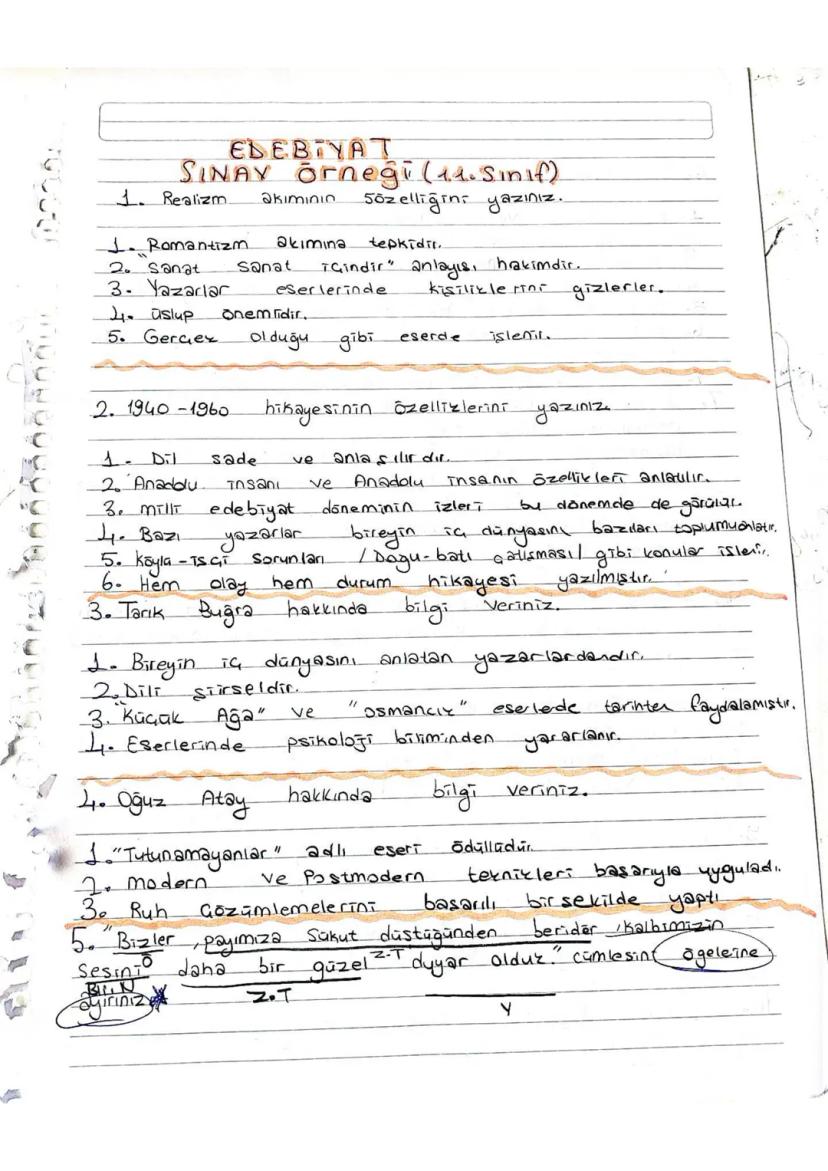 EDEBİYAT
SINAV Örneği (11. Sınıf)
1. Realizm akımının 5özelliğini yazınız.
1. Romantizm akımına tepkidir.
2. "Sanat sanat içindir" anlayışı hakimdir.
3. Yazarlar eserlerinde kişiliklerini gizlerler.
4. üslup önemlidir.
5. Gerçek olduğu gibi eserde işlenir.
2. 1940-1960 hikayesinin özelliklerini yazınız.
1. Dil sade ve anlaşılırdır.
2. Anadolu insanı ve Anadolu insanın özellikleri anlatılır.
3. milli edebiyat döneminin izleri bu dönemde de görülür.
4. Bazı yazarlar bireyin iç dünyasını bazıları toplumu anlatır.
5. Köylü-işçi sorunları / Doğu-batı çatışması / gibi konular işlenir.
6. Hem olay hem durum hikayesi yazılmıştır.
3. Tarık Buğra hakkında bilgi veriniz.
1. Bireyin iç dünyasını anlatan yazarlardandır.
2. Dili şiirseldir.
3. "Küçük Ağa" ve "osmancık" eserlerde tarihten faydalamıştır.
4. Eserlerinde psikoloji biliminden yararlanır.
4. Oğuz Atay hakkında bilgi veriniz.
1. "Tutunamayanlar" adlı eseri ödüllüdür.
2. modern ve Postmodern teknikleri başarıyla uyguladı.
3. Ruh çözümlemelerini başarılı bir şekilde yaptı
5. "Bizler, payımıza sükut düştüğünden beridir, kalbimizin
Ö Z.T
sesini daha bir güzel duyar olduk." cümlesini ögelerine
ayırınız
Z.T
Y